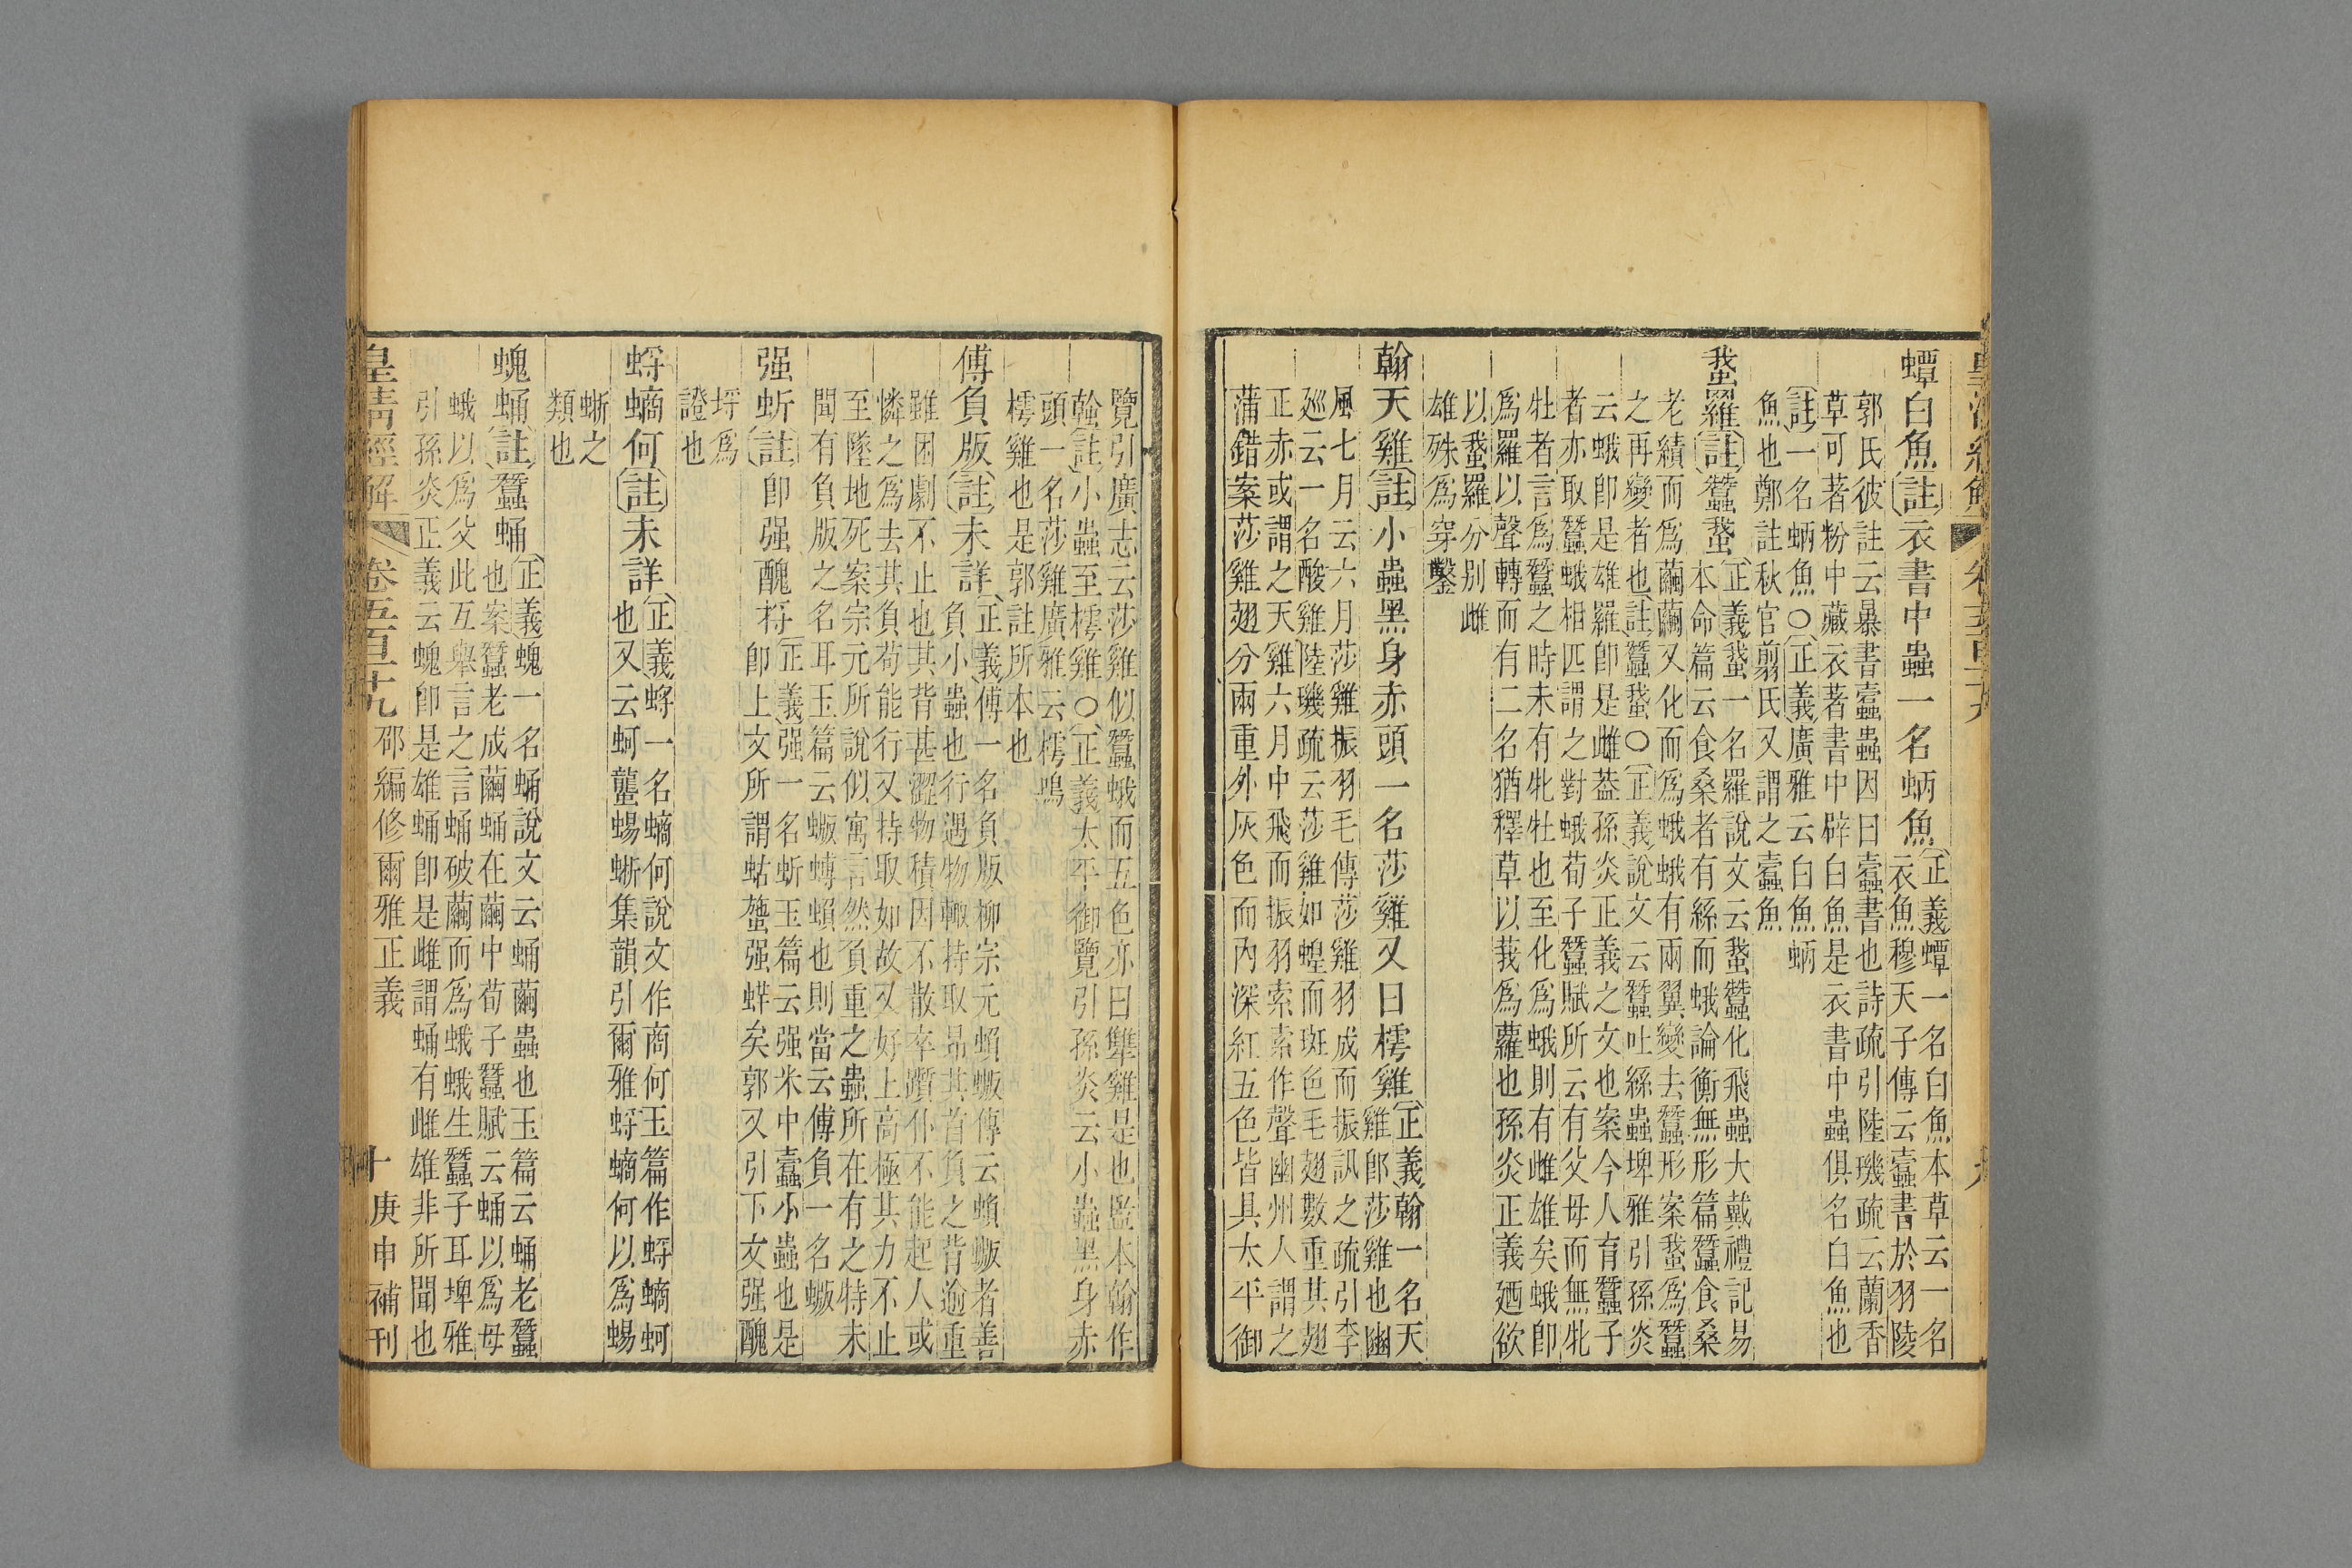 蟫白魚註衣書中蟲一名蛃魚正義蟫一名白魚本草云一名
衣魚穆天子傳云蠹書於羽陵
郭氏彼註云暴書蠹蟲因曰蠹書也詩疏引陸璣疏云蘭香
草可著粉中藏衣著書中辟白魚是衣書中蟲俱名白魚也
註一名蛃魚○正義廣雅云白魚蛃
魚也鄭註秋官翦氏又謂之蠹魚
蛾羅註蠶蛾正義蛾一名羅說文云蛾蠶化飛蟲大戴禮記易
本命篇云食桑者有絲而蛾論衡無形篇蠶食桑
老績而爲繭繭又化而爲蛾蛾有兩翼變去蠶形案蛾爲蠶
之再變者也註蠶蛾○正義說文云蠶吐絲蟲埤雅引孫炎
云蛾卽是雄羅卽是雌蓋孫炎正義之文也案今人育蠶子
者亦取蠶蛾相匹謂之對蛾荀子蠶賦所云有父母而無牝
牡者言爲蠶之時未有牝牡也至化爲蛾則有雌雄矣蛾卽
爲羅以聲轉而有二名猶釋草以莪爲蘿也孫炎正義廼欲
以蛾羅分別雌
雄殊爲穿鑿
翰天雞註小蟲黑身赤頭一名莎雞又曰樗雞正義翰一名天
雞卽莎雞也豳
風七月云六月莎雞振羽毛傳莎雞羽成而振訊之疏引李
廵云一名酸雞陸璣疏云莎雞如蝗而斑色毛翅數重其翅
正赤或謂之天雞六月中飛而振羽索索作聲幽州人謂之
蒲錯案莎雞翅分兩重外灰色而內深紅五色皆具太平御
覽引廣志云莎雞似蠶蛾而五色亦曰犨雞是也監本翰作
螒註小蟲至樗雞○正義太平御覽引孫炎云小蟲黑身赤
頭一名莎雞廣雅云樗鳩
樗雞也是郭註所本也
傅負版註未詳正義傅一名負版柳宗元蝜蝂傳云蝜蝂者善
負小蟲也行遇物輙持取昻其首負之背逾重
雖困劇不止也其背甚澀物積因不散卒躓仆不能起人或
憐之爲去其負苟能行又持取如故又好上高極其力不止
至墜地死案宗元所說似寓言然負重之蟲所在有之特未
聞有負版之名耳玉篇云蝂蟳蝜也則當云傅負一名蝂
强蚚註卽强醜捋正義强一名蚚玉篇云强米中蠹小蟲也是
卽上文所謂蛄䗐强蛘矣郭又引下文强醜
捋爲
證也
蛶螪何註未詳正義蛶一名螪何說文作商何玉篇作蛶螪蚵
也又云蚵蠪蜴蜥集韻引爾雅蛶螪何以爲蜴
蜥之
類也
螝蛹註蠶蛹正義螝一名蛹說文云蛹繭蟲也玉篇云蛹老蠶
也案蠶老成繭蛹在繭中荀子蠶賦云蛹以爲母
蛾以爲父此互舉言之言蛹破繭而爲蛾蛾生蠶子耳埤雅
引孫炎正義云螝卽是雄蛹卽是雌謂蛹有雌雄非所聞也
皇淸經解 卷五百十九 邵編修爾雅正義 十 庚申補刊